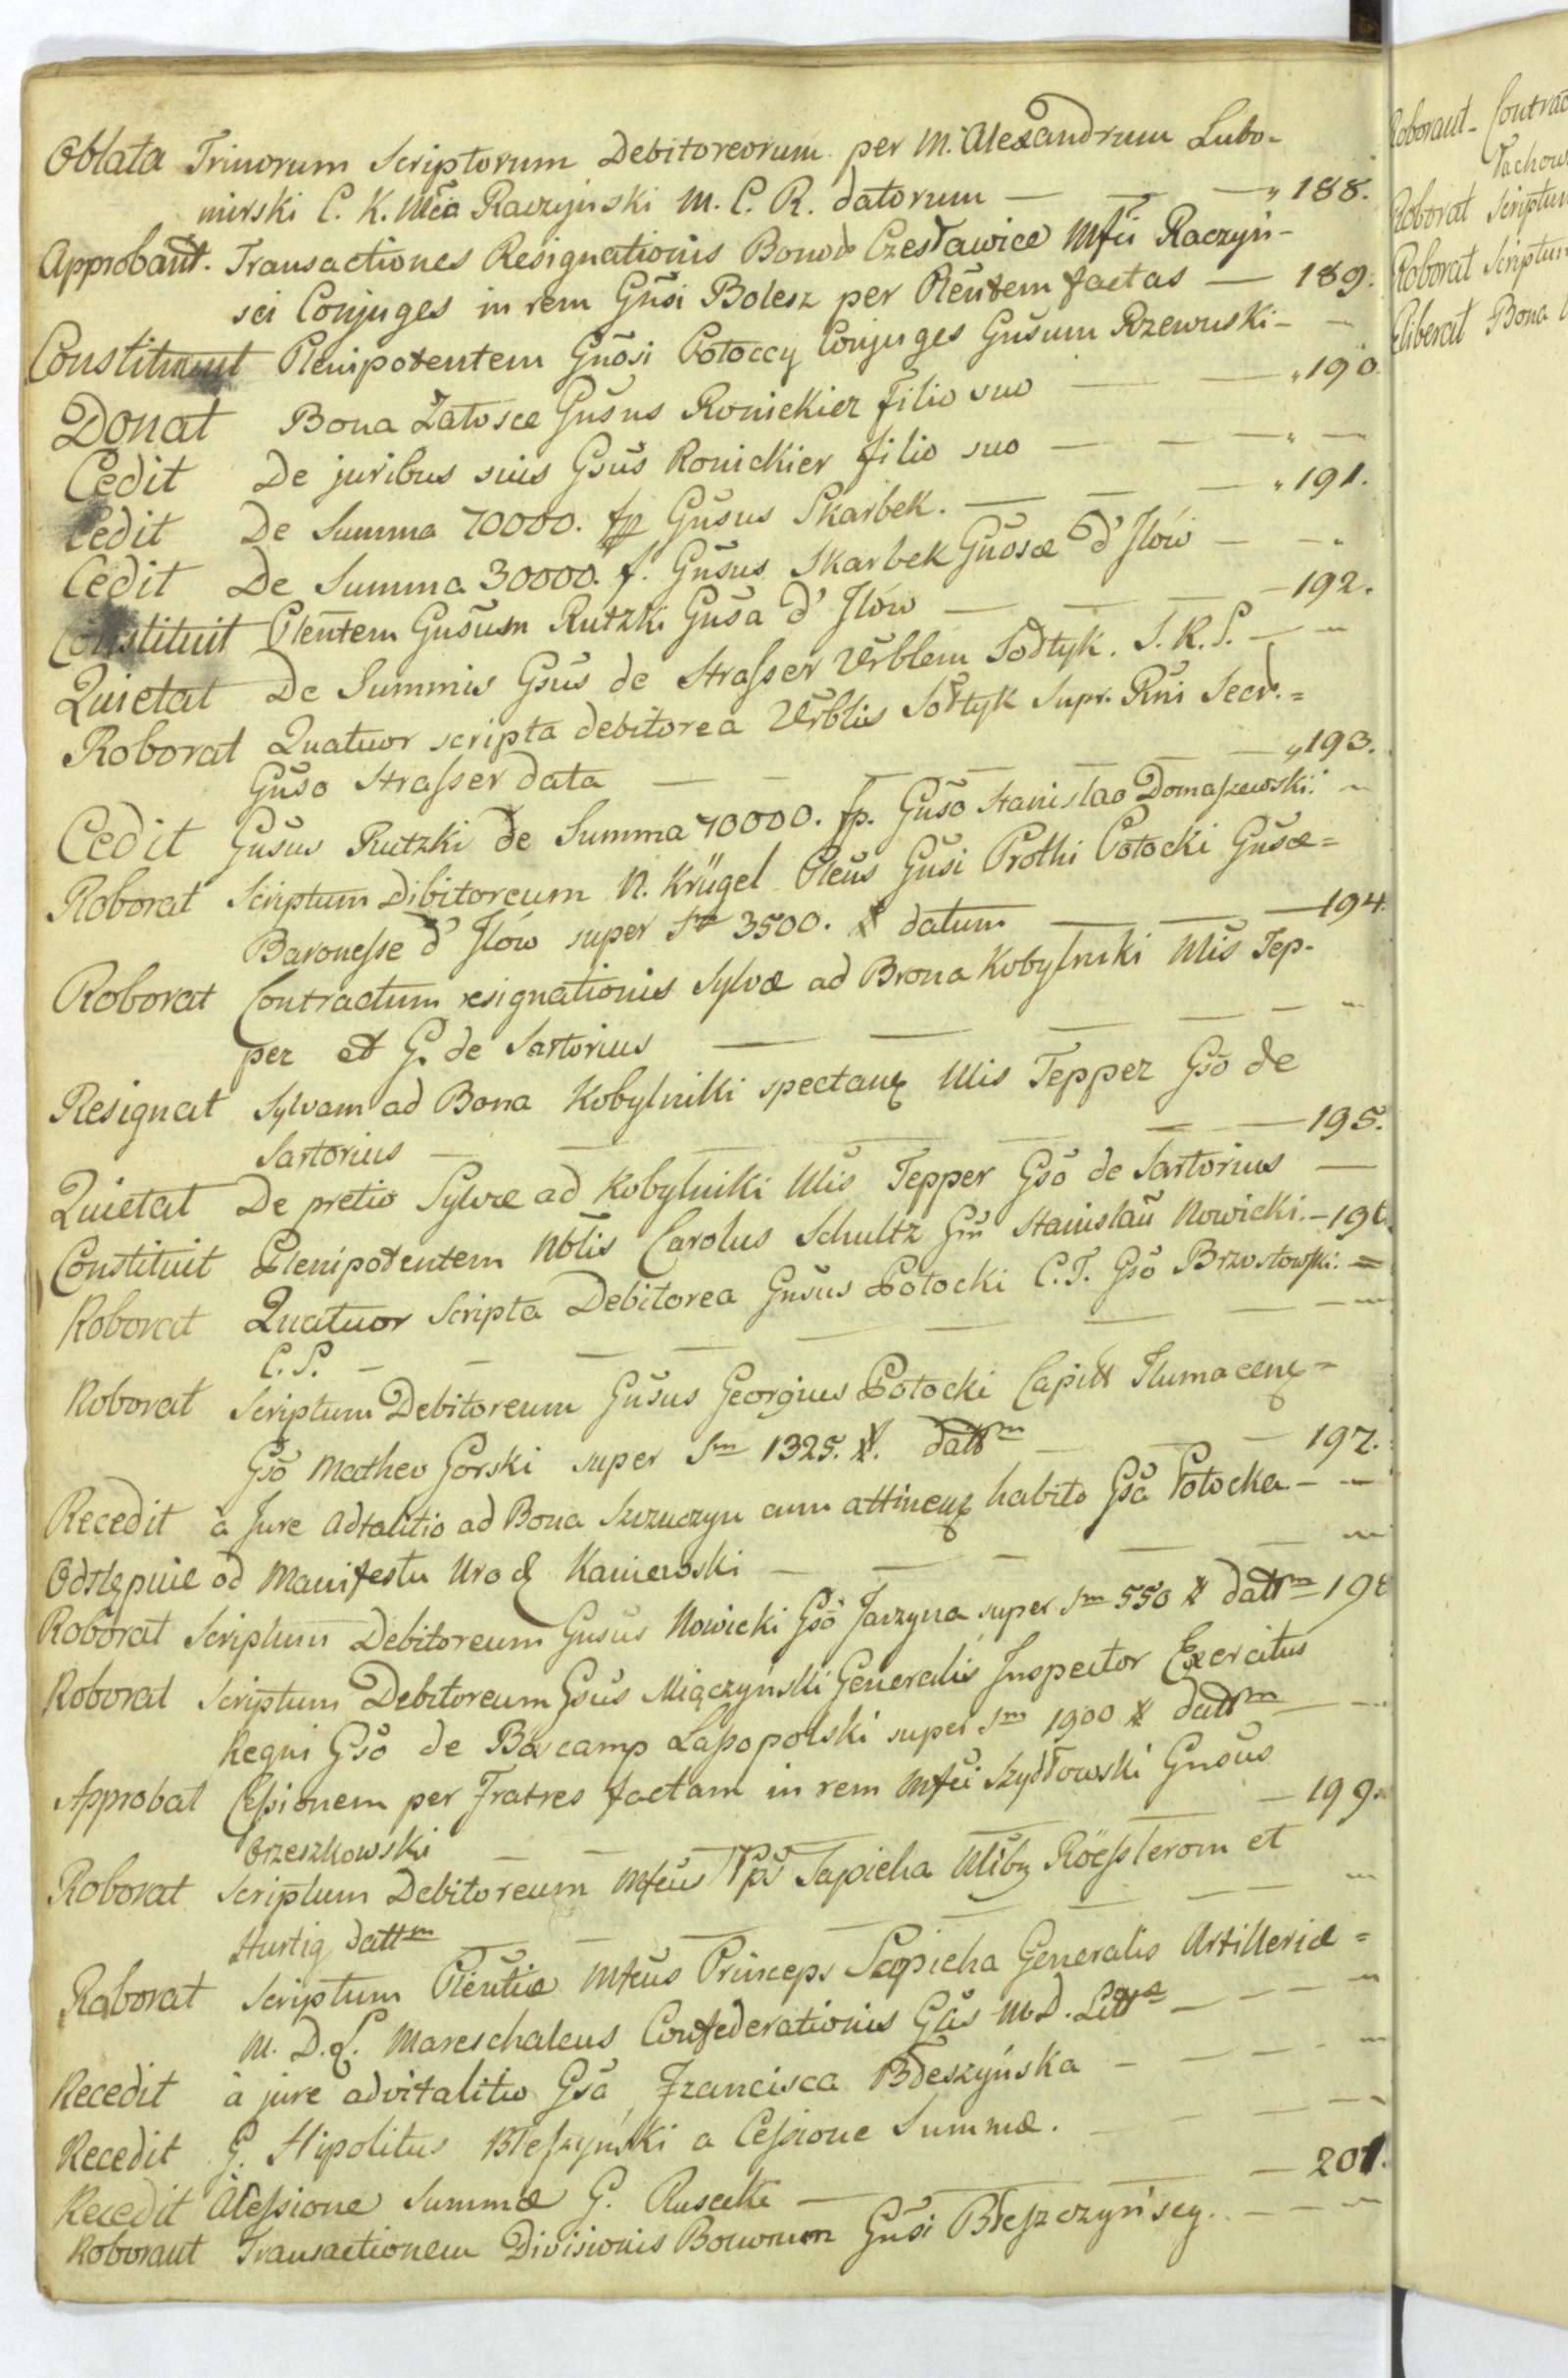 Oblata Trinorum Scriptorum Debitoreorum per M. Alexandrum Lubo-
mirski C. K. Mĉa Raczyński M. C. R. datorum — — —„ 188.
Approbant. Transactiones Resignationis Bonor Czesławice Mfci Raczyń-
sci Conjuges in rem Gnŝi Bolesz per Plēntem factas — 189.
Constituunt Plenipotentem Gnosi Potoccy Conjuges Gnŝum Rzewuski — —
Donat Bona Zatosce Gnŝus Ronickier filio suo — — „190.
Cedit De juribus suis Gsus Ronickier filio suo — — — „ —
Cedit De Summa 70000. fp Gnŝus Skarbek. — — — „191.
Cedit De Summa 30000. f. Gnŝus Skarbek Gnosæ d'Jłów — — „
Constituit Plēntem Gnŝum Rutzki Gnŝa d'Jłów — — — — 192.
Quietat De Summis Gsus de Strasser Urblem Sołtyk. S. R. S. — —
Roborat Quatuor scripta debitorea Urblis Sołtyk Supr. Rni Secr. =
Gnŝo Strasser data — — — — — — „193.
Cedit Gnŝus Rutzki de Summa 70000. fp. Gnŝo Stanislao Domaszewski. —
Roborat Scriptum Dibitoreum N. Krügel Plēus Gnŝi Prothi Potocki Gnŝæ =
Baronesse d'Jłów super Sm 3500. # datum — — — 194.
Roborat Contractum resignationis Sylvæ ad Brona Kobylniki Mĩs Tep-
per et G. de Sartorius — — — — — —
Resignat Sylvam ad Bona Kobylniki spectanȝ Mis Tepper Gsō de
Sartorius — — — — — — 195.
Quietat De pretio Sylvæ ad Kobylniki Mĩs Tepper Gsō de Sartorius —
Constituit Plenipotentem Nblis Carolus Schultz Gm Stanislaū Nowicki. — 196.
Roborat Quatuor Scripta Debitorea Gnŝus Potocki C. T. Gsō Brzostowski. =
C. P. — — — — — — — — —
Roborat Scriptum Debitoreum Gnŝus Georgius Potocki Capitt Tlumacenȝ =
Gsō Matheo Gorski super Sm 1325. #. dattm — — — 197.
Recedit à Jure advitalitio ad Bona Szczuczyn cum attinenȝ habito Gsa Potocka — —
Odstępuie od Manifestu Urod Kaniewski — — — — — —
Roborat Scriptum Debitoreum Gnŝus Nowicki Gsō Jarzyna super Sm 550 # dattm 198
Roborat Scriptum Debitoreum Gsus Miączyński Generalis Inspector Exercitus
Regni Gsō de Bascamp Lasopolski super Sm 1900 # dattm — —
Approbat Cessionem per Fratres factam in rem Mfci Szydłowski Gnŝus
Orzeszkowski — — — — — 199.
Roborat Scriptum Debitoreum Mfcus Pps Sapieha Mlibȝ Röesslerom et
Hurtig dattm — — — — — — —
Roborat Scriptum Plēntiæ Mfcus Princeps Sapieha Generalis Artilleriæ =
M. D. L. Mareschalcus Confederationis Glis M. D. Littæ — — — —
Recedit à jure advitalitio Gsa Francisca Błeszyńska — — — — —
Recedit G. Hipolitus Błeszyński a Cessione Summæ. — — — —
Recedit à Cessione Summæ G. Ruscette — — — 201.
Roborant Transactionem Divisionis Bonorum Gnŝi Błeszczyńscy. — — —
Roborant - Contrac
Roborat Scriptum
Roborat Scriptum
Bona